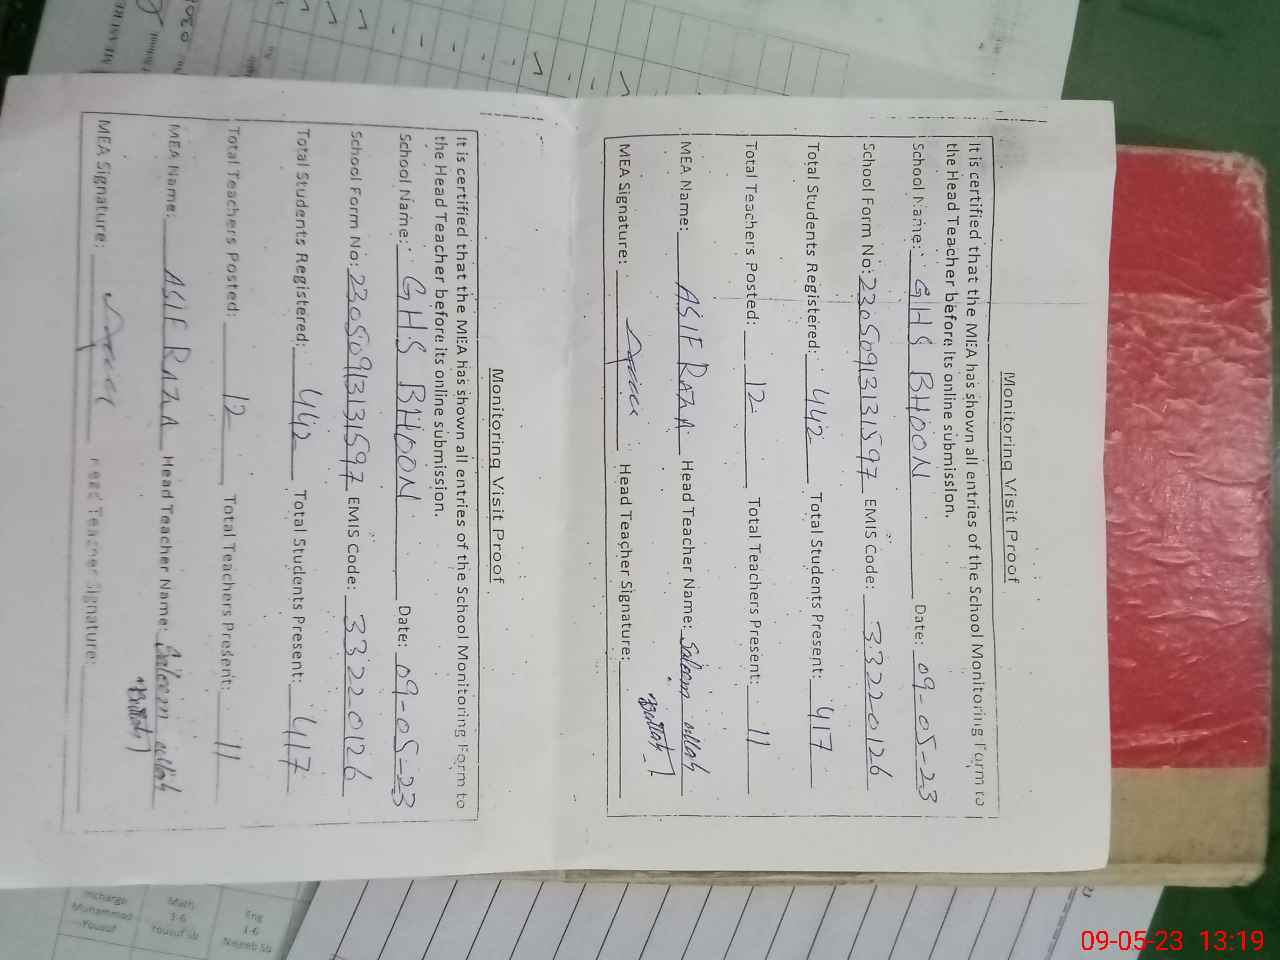 Monitoring Visit Proof
It is certified that the MEA has shown all entries of the School Monitoring Form to
the Head Teacher before its online submission.
School Name: GHS BHOON Date: 09-05-23
School Form No: 23050913131597 EMIS Code: 33220126
Total Students Registered: 442 Total Students Present: 417
Total Teachers Posted: 12 Total Teachers Present: 11
MEA Name: ASIF RAZA Head Teacher Name: Saleem ullah
MEA Signature: Head Teacher Signature:
Monitoring Visit Proof
It is certified that the MEA has shown all entries of the School Monitoring Form to
the Head Teacher before its online submission.
School Name: GHS BHOON Date: 09-05-23
School Form No: 23050913131597 EMIS Code: 33220126
Total Students Registered: 442 Total Students Present: 417
Total Teachers Posted: 12 Total Teachers Present: 11
MEA Name: ASIF RAZA Head Teacher Name: Saleem ullah
MEA Signature: Head Teacher Signature:
Incharge
Muhammad
Yousuf
Math
3-6
Yousuf sb
Eng
1-6
09-05-23 13:19